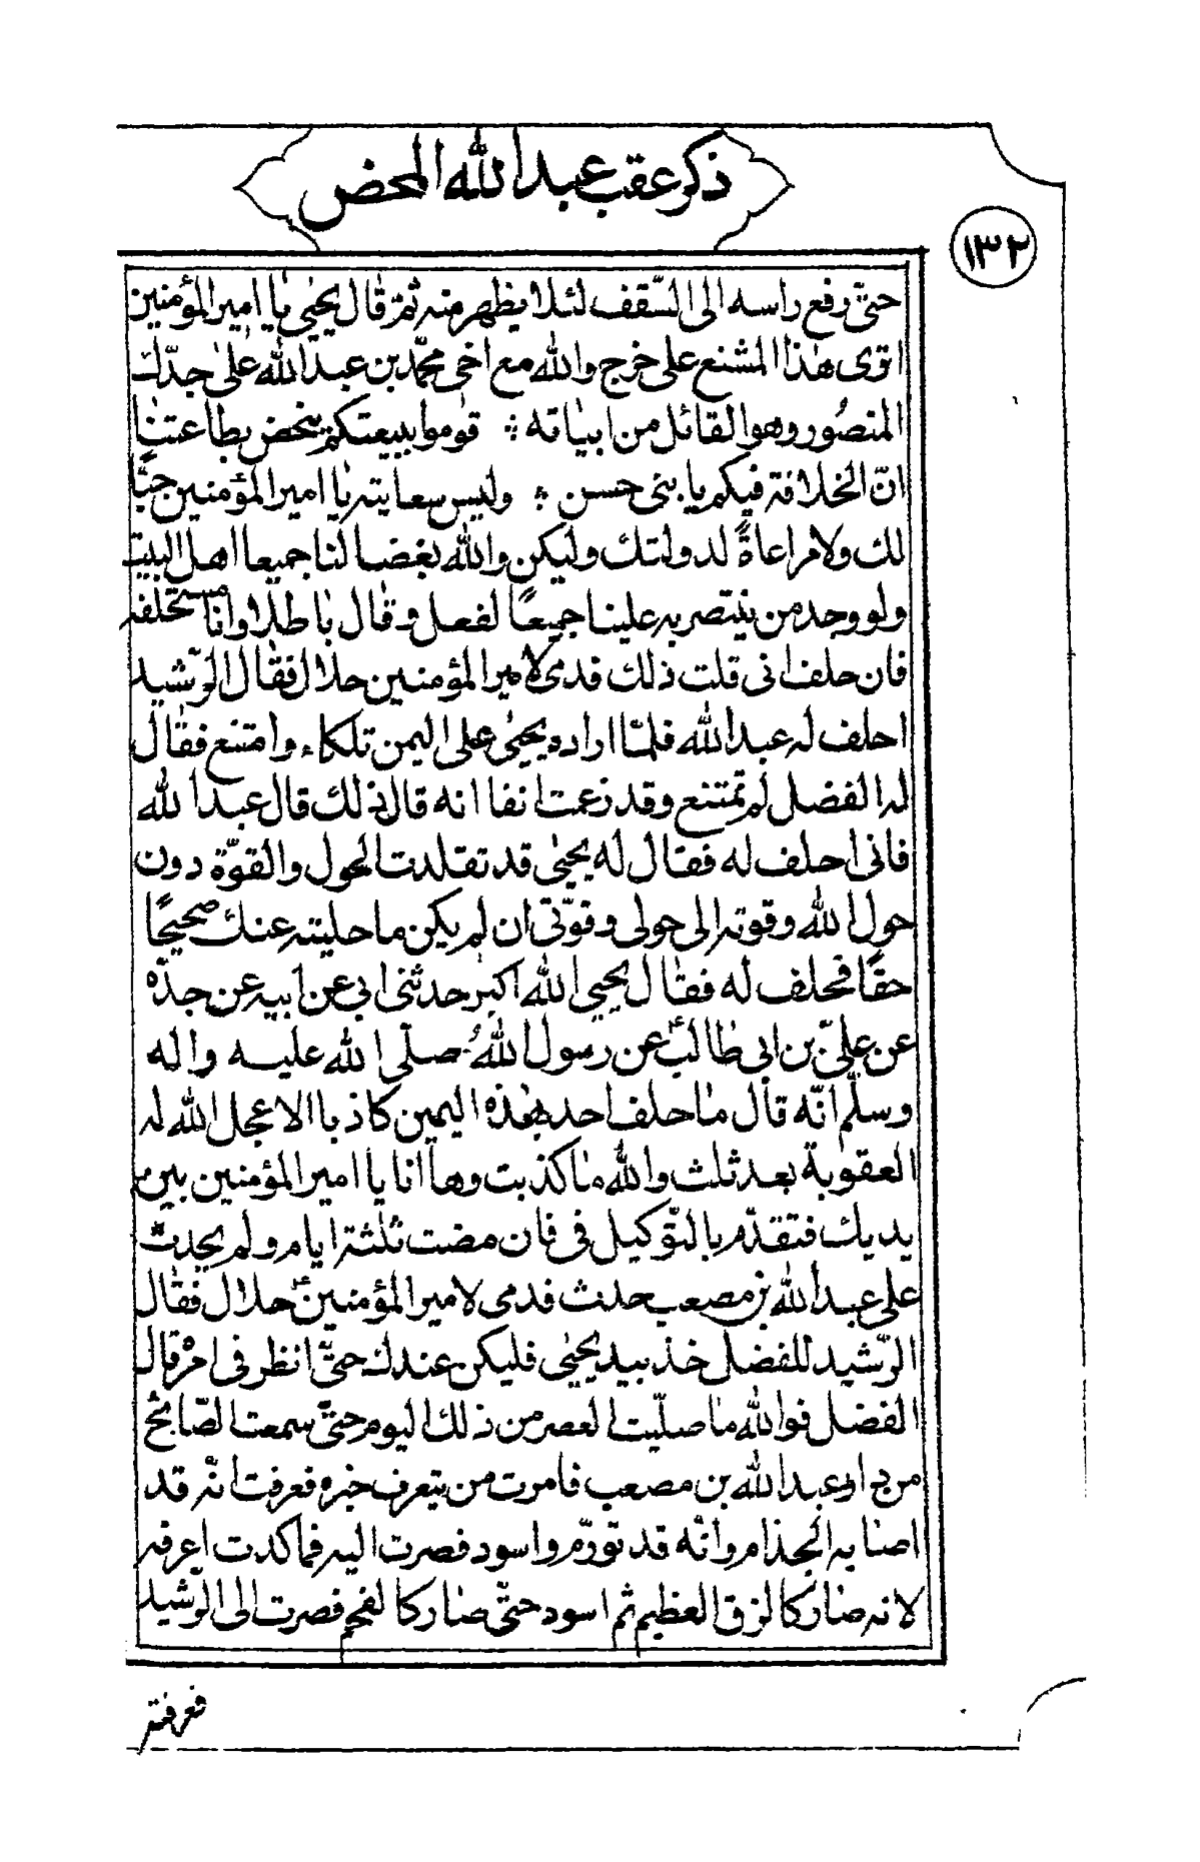 ذكر عقب عبد الله المحض
١٣٢
حتى رفع راسه الى السّقف لئلا يظهر منه ثمّ قال يحيى يا امير المؤمنين
اترى هذا المشنع على خرج والله مع اخى محمّد بن عبد الله على جدّك
المنصور وهو القائل من ابياته ؛ قوموا ببيعتكم ننهض بطاعتنا
انّ الخلافة فيكم يا بنى حسن ؛ وليس سعايته يا امير المؤمنين حبًّا
لك ولا مراعاةً لدولتك وليكن والله بغضا لنا جميعا اهل البيت
ولو وجد من ينتصر به علينا جميعًا لفعل وقال باطلا وانا مستحلفه
فان حلف انى قلت ذلك فدمى لامير المؤمنين حلال فقال الرّشيد
احلف له عبد الله فلمّا اراده يحيى على اليمن تلكاء وامتنع فقال
له الفضل لم تمتنع وقد زعمت انفا انه قال ذلك قال عبد الله
فانى احلف له فقال له يحيى قد تقلدت الحول والقوّة دون
حول الله وقوته الى حولى وقوّتى ان لم يكن ما حليته عنك صحيحًا
حقًا فحلف له فقال يحيى الله اكبر حدثنى ابى عن ابيه عن جدّه
عن علىّ بن ابى طالب عن رسول الله صلّى الله عليه واله
وسلّم انّه قال ما حلف احد بهذه اليمين كاذبا الا عجل الله له
العقوبة بعد ثلث والله ما كذبت وها انا يا امير المؤمنين بين
يديك فتقدّم بالتّوكيل فى فان مضت ثلثة ايام ولم يحدث
على عبد الله بن مصعب حدث فدمى لامير المؤمنين حلال فقال
الرّشيد للفضل خذ بيد يحيى فليكن عندك حتّى انظر فى امره قال
الفضل فوالله ما صلّيت العصر من ذلك اليوم حتىّ سمعت الصّايح
من دار عبد الله بن مصعب فامرت من يتعرف خبره فعرفت انّه قد
اصابه الجذام وانّه قد تورّم واسود فصرت اليه فما كدت اعرفه
لانه صار كالزق العظيم ثم اسود حتّى صار كالفحم فصرت الى الرّشيد
فعرفته